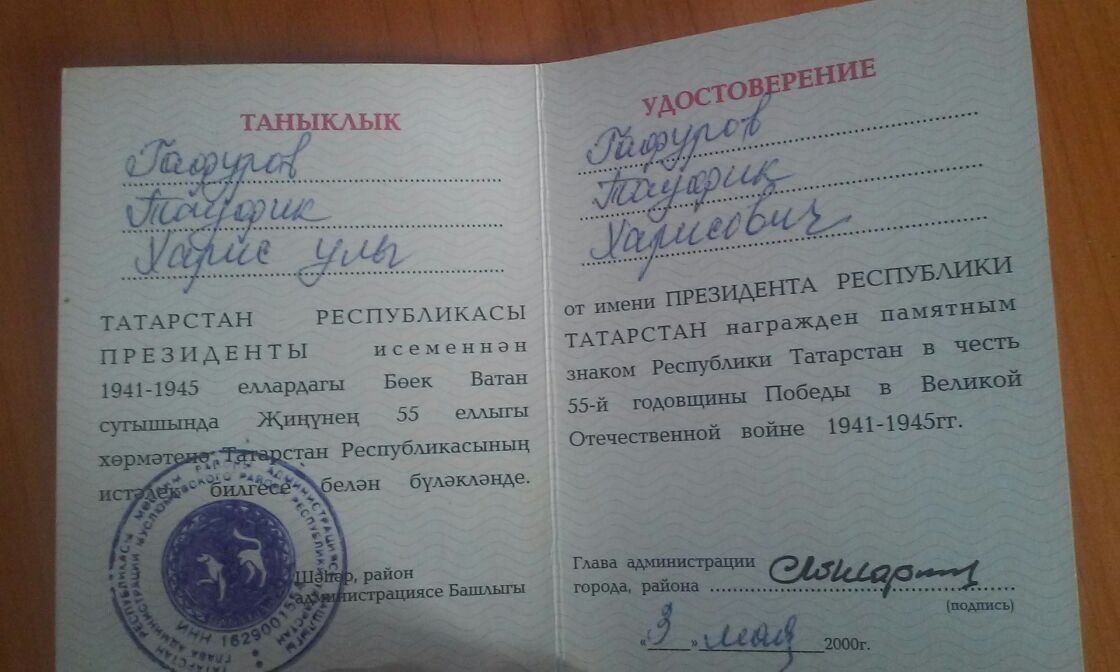 ТАНЫКЛЫК
Гафуров
Тауфик
Харис улы
ТАТАРСТАН РЕСПУБЛИКАСЫ
ПРЕЗИДЕНТЫ исеменнән
1941-1945 еллардагы Бөек Ватан
сугышында Җиңүнең 55 еллыгы
хөрмәтенә Татарстан Республикасының
истәлек билгесе белән бүләкләнде.
Шәһәр, район
администрациясе Башлыгы
УДОСТОВЕРЕНИЕ
Гафуров
Тауфик
Харисович
от имени ПРЕЗИДЕНТА РЕСПУБЛИКИ
ТАТАРСТАН награжден памятным
знаком Республики Татарстан в честь
55-й годовщины Победы в Великой
Отечественной войне 1941-1945гг.
Глава администрации
города, района
(подпись)
«9» мая 2000г.